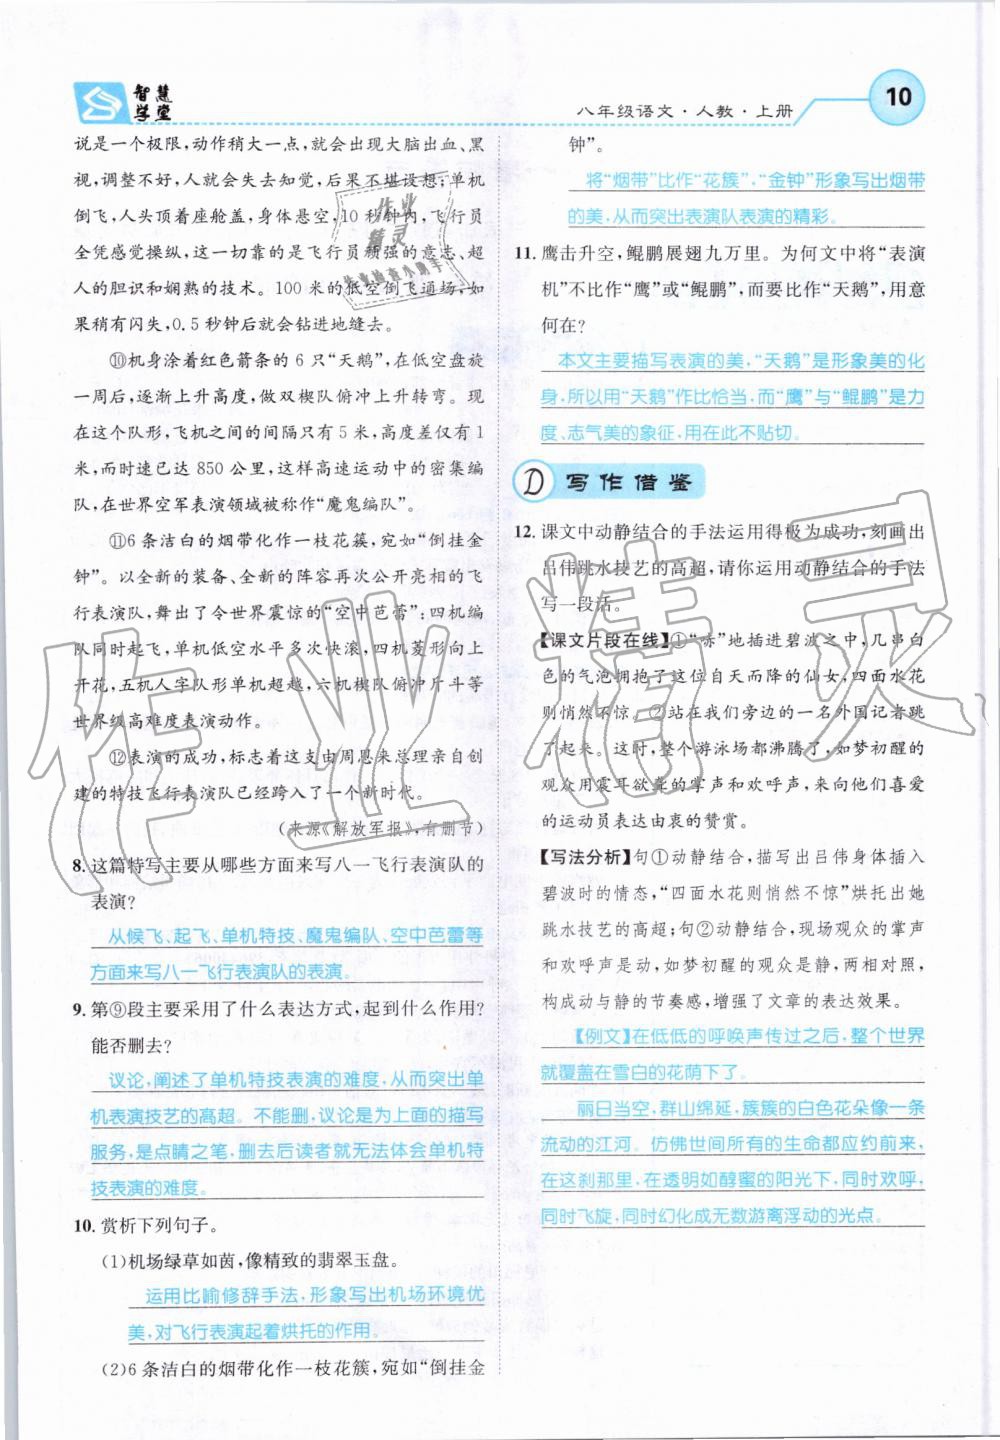 智慧学堂
八年级语文·人教·上册
10
说是一个极限,动作稍大一点,就会出现大脑出血、黑
视,调整不好,人就会失去知觉,后果不堪设想;单机
倒飞,人头顶着座舱盖,身体悬空,10秒钟内,飞行员
全凭感觉操纵,这一切靠的是飞行员顽强的意志、超
人的胆识和娴熟的技术。100米的低空倒飞通场,如
果稍有闪失,0.5秒钟后就会钻进地缝去。
⑩机身涂着红色箭条的6只“天鹅”,在低空盘旋
一周后,逐渐上升高度,做双楔队俯冲上升转弯。现
在这个队形,飞机之间的间隔只有5米,高度差仅有1
米,而时速已达850公里,这样高速运动中的密集编
队,在世界空军表演领域被称作“魔鬼编队”。
⑪6条洁白的烟带化作一枝花簇,宛如“倒挂金
钟”。以全新的装备、全新的阵容再次公开亮相的飞
行表演队,舞出了令世界震惊的“空中芭蕾”:四机编
队同时起飞,单机低空水平多次快滚,四机菱形向上
开花,五机人字队形单机超越,六机楔队俯冲斤斗等
世界级高难度表演动作。
⑫表演的成功,标志着这支由周恩来总理亲自创
建的特技飞行表演队已经跨入了一个新时代。
(来源《解放军报》,有删节)
8. 这篇特写主要从哪些方面来写八一飞行表演队的
表演?
从候飞、起飞、单机特技、魔鬼编队、空中芭蕾等
方面来写八一飞行表演队的表演。
9. 第⑨段主要采用了什么表达方式,起到什么作用?
能否删去?
议论,阐述了单机特技表演的难度,从而突出单
机表演技艺的高超。不能删,议论是为上面的描写
服务,是点睛之笔,删去后读者就无法体会单机特
技表演的难度。
10. 赏析下列句子。
(1)机场绿草如茵,像精致的翡翠玉盘。
运用比喻修辞手法,形象写出机场环境优
美,对飞行表演起着烘托的作用。
(2)6条洁白的烟带化作一枝花簇,宛如“倒挂金
钟”。
将“烟带”比作“花簇”,“金钟”形象写出烟带
的美,从而突出表演队表演的精彩。
11. 鹰击升空,鲲鹏展翅九万里。为何文中将“表演
机”不比作“鹰”或“鲲鹏”,而要比作“天鹅”,用意
何在?
本文主要描写表演的美,“天鹅”是形象美的化
身,所以用“天鹅”作比恰当,而“鹰”与“鲲鹏”是力
度、志气美的象征,用在此不贴切。
D 写作借鉴
12. 课文中动静结合的手法运用得极为成功,刻画出
吕伟跳水技艺的高超,请你运用动静结合的手法
写一段话。
【课文片段在线】①“哧”地插进碧波之中,几串白
色的气泡拥抱了这位自天而降的仙女,四面水花
则悄然不惊。②站在我们旁边的一名外国记者跳
了起来。这时,整个游泳场都沸腾了,如梦初醒的
观众用震耳欲聋的掌声和欢呼声,来向他们喜爱
的运动员表达由衷的赞赏。
【写法分析】句①动静结合,描写出吕伟身体插入
碧波时的情态,“四面水花则悄然不惊”烘托出她
跳水技艺的高超;句②动静结合,现场观众的掌声
和欢呼声是动,如梦初醒的观众是静,两相对照,
构成动与静的节奏感,增强了文章的表达效果。
【例文】在低低的呼唤声传过之后,整个世界
就覆盖在雪白的花荫下了。
丽日当空,群山绵延,簇簇的白色花朵像一条
流动的江河。仿佛世间所有的生命都应约前来,
在这刹那里,在透明如醇蜜的阳光下,同时欢呼,
同时飞旋,同时幻化成无数游离浮动的光点。
作业精灵
作业精灵
作业检查小助手